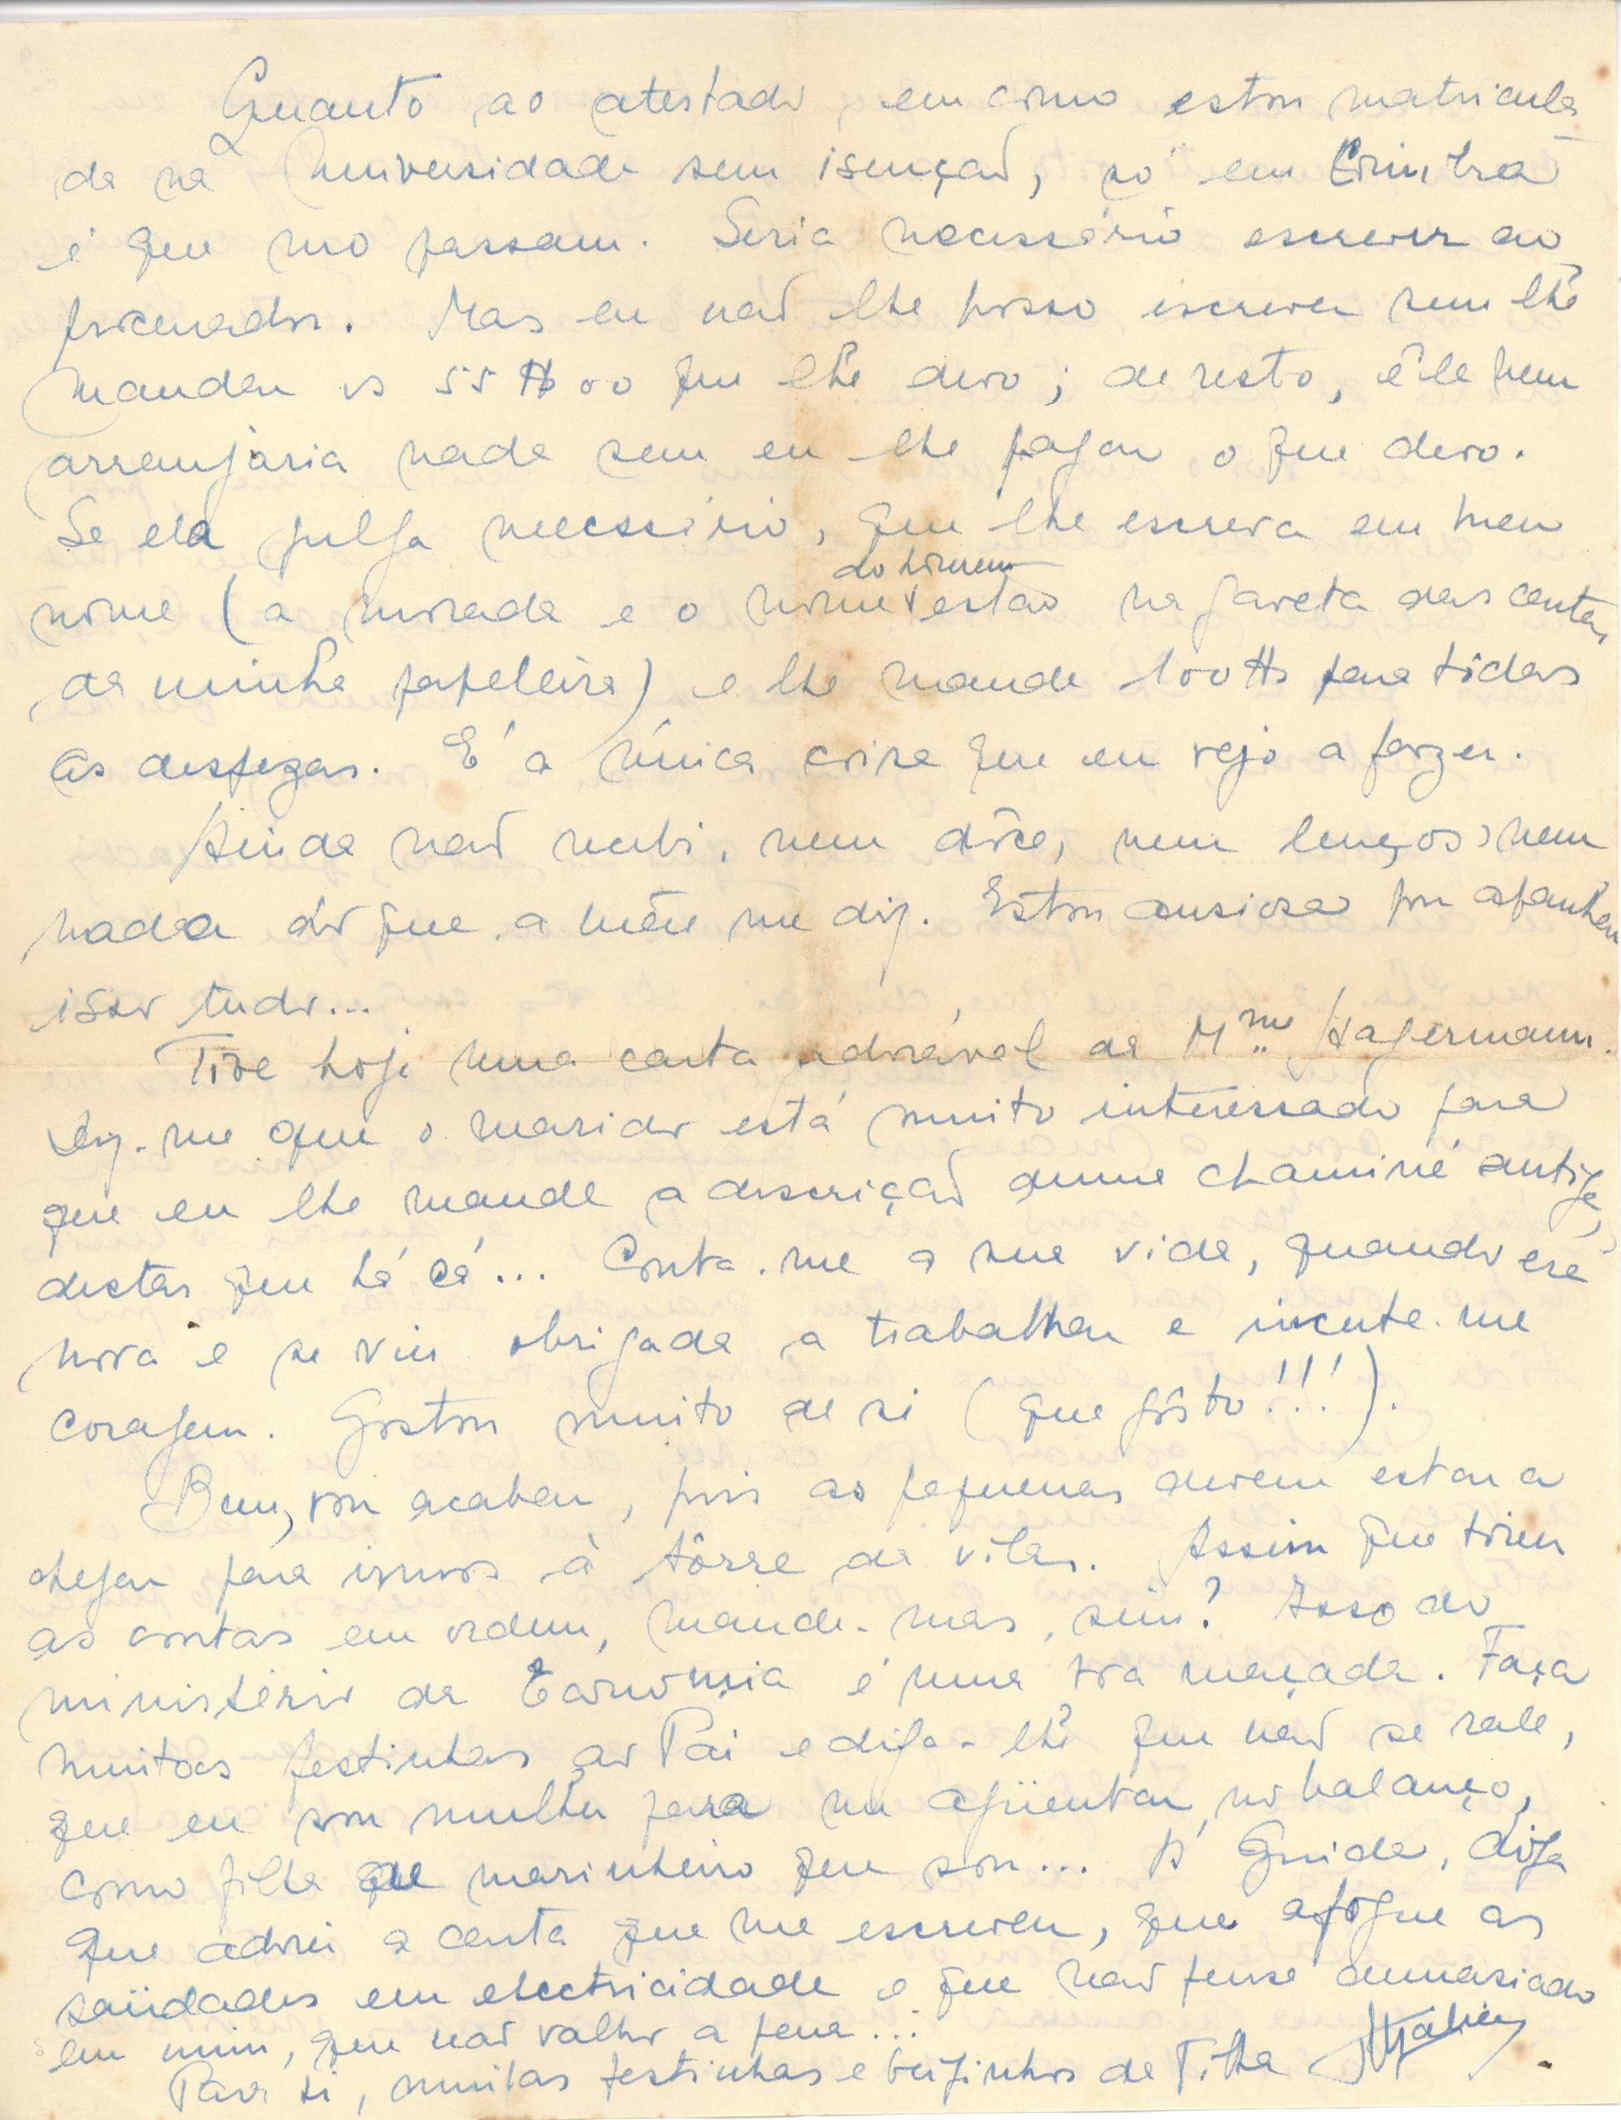 Quanto ao atestado em como estou matricula
da na Universidade sem isenção, só em Coimbra
é que mo passam. Seria necessário escrever ao
procurador. Mas eu não lhe posso escrever sem lhe
mandar os 55$00 que lhe devo; de resto, êle nem
arranjaria nada sem eu lhe pagar o que devo.
Se ela julga necessário, que lhe escreva em meu
do homem
nome (a morada e o nome estão na gaveta das cartas
da minha papeleira) e lhe mande 100$ para tôdas
as despezas. É a única coisa que eu vejo a fazer.
Ainda não recebi, nem dôce, nem lenços, nem
nada do que a Mãe me diz. Estou ansiosa por apanhar
isso tudo...
Tive hoje uma carta adorável da Mme Hagermann.
Diz-me que o marido está muito interessado para
que eu lhe mande a descrição duma chaminé antiga,
destas que há cá... Conta-me a sua vida, quando era
nova e se viu obrigada a trabalhar e incute-me
coragem. Gostou muito de si (que gôsto!!!).
Bem, vou acabar, pois as pequenas devem estar a
chegar para irmos à tôrre da vila. Assim que tiver
as contas em ordem, mande-mas, sim? Isso do
ministério da Economia é uma boa maçada. Faça
muitas festinhas ao Pai e diga-lhe que não se rale,
que eu sou mulher para me agüentar no balanço,
como filha de marinheiro que sou... À Guida, diga
que adorei a carta que me escreveu, que afogue as
saüdades em electricidade e que não pense demasiado
em mim, que não valho a pena...
Para si, muitas festinhas e beijinhos da Filha